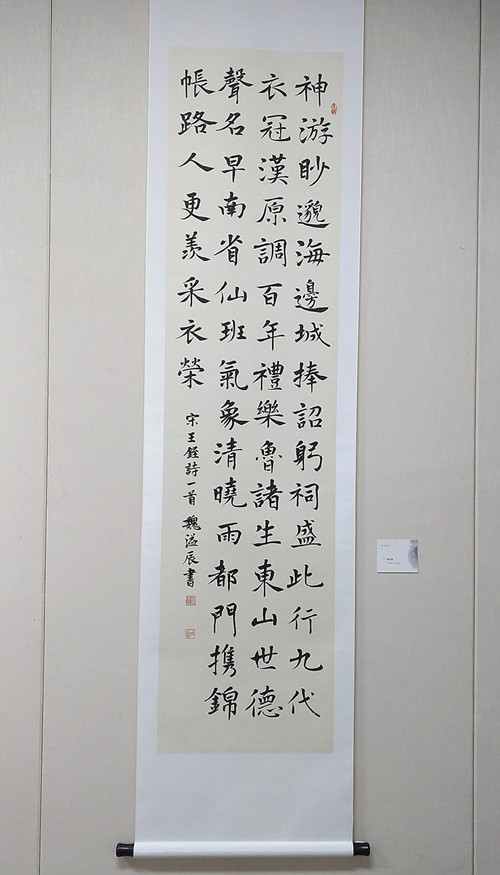 神游眇邈海邊城捧詔躬祠盛此行九代
衣冠漢原調百年禮樂魯諸生東山世德
聲名早南省仙班氣象清曉雨都門攜錦
帳路人更羨采衣榮
宋王銍詩一首 魏溢辰書